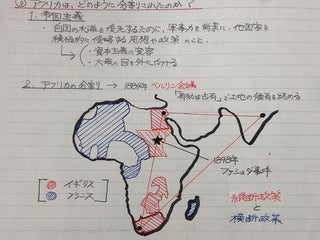 アフリカは、どのように分割されたのか?
1. 帝国主義
・自国の利益を優先するために、軍事力を背景に、他国家を
積極的に侵略する思想や政策のこと。
・資本主義の変容
・大衆の目を外に向ける
2. アフリカの分割 → 1884年 ベルリン会議
「有効な占有」で土地の領有を認める
1898年
ファショダ事件
イギリス
フランス
縦断政策
と
横断政策